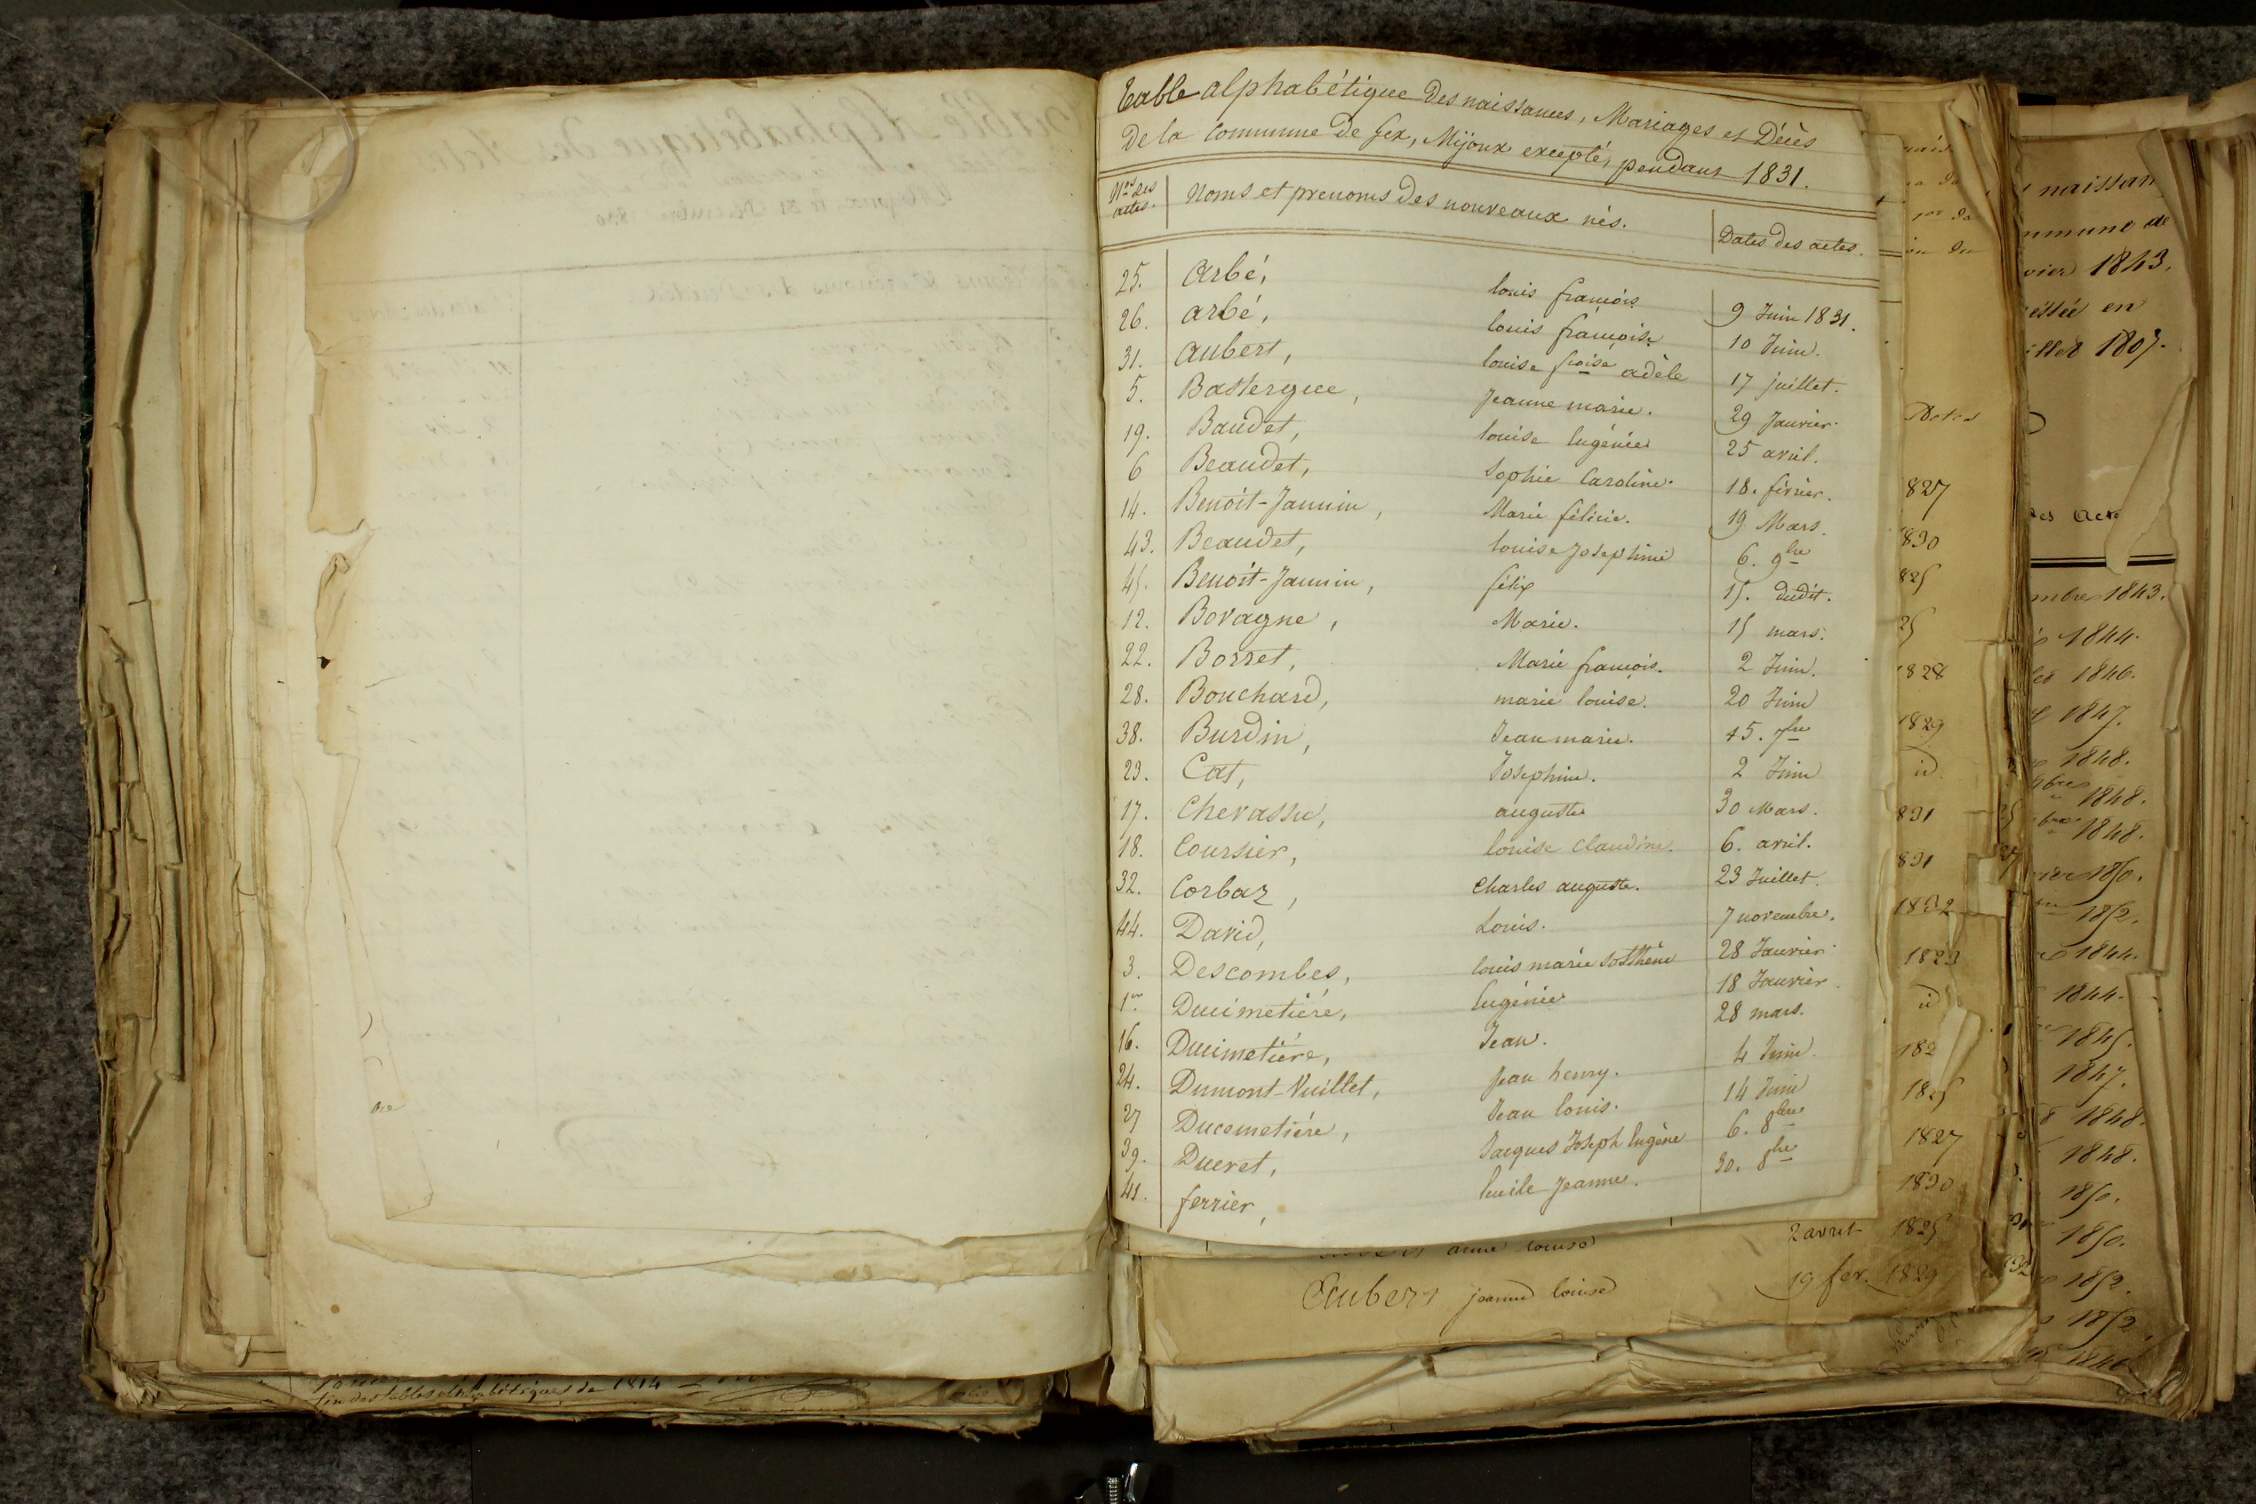 Table alphabétique des naissances, Mariages et Décès
De la Commune de Gex, Mijoux excepté, pendant 1831.
Nos des actes. Noms et prenoms des nouveaux nés. Dates des actes.
25. Arbé, louis françois 9 Juin 1831.
26. Arbé, louis françoise 10 Juin.
31. Aubert, louise froise adèle 17 juillet.
5. Bastergue, Jeanne marie. 29 Janvier.
19. Baudet, louise Eugénie 25 avril.
6 Beaudet, Sophie Caroline. 18. février.
14. Benoit-Jannin, Marie félicie. 19 Mars.
43. Beaudet, louise Josephine 6. 9bre
45. Benoit-Jannin, félix 15. dudit.
12. Bovagne, Marie. 15 mars.
22. Borret, Marie françois. 2 Juin.
28. Bouchard, marie louise. 20 Juin
38. Burdin, Jean marie. 15. 7bre
23. Cat, Josephine. 2 Juin
17. Chevassu, auguste 30 Mars.
18. Coursier, louise Claudine. 6. avril.
32. Corbaz, Charles auguste. 23 Juillet.
44. David, Louis. 7 novembre.
3. Descombes, louis marie Sosthène 28 Janvier
1er. Ducimetière, Eugénie 18 Janvier.
16. Ducimetière, Jean. 28 mars.
24. Dumont-Vuillet, Jean henry. 4 Juin.
27 Ducemetière, Jean louis. 14 Juin
39. Ducret, Jacques Joseph Eugène 6. 8bre
41. ferrier, lucile Jeanne. 30. 8bre
anne louise 2 avril 1825
Aubert jeanne louise 19 fev. 1829
Dates
827
1830
825
25
1828
1829
id
831
831
1832
1823
id
182
1825
1827
1830
naissan
mmune de
vier 1843.
en
1807.
des Acte
mbre 1843.
1844.
1846.
1847.
1848.
1848.
1848.
1850.
1852.
1844.
1844.
1845.
1847.
1848.
1848.
1850.
1850.
1852.
1852.
1846
Table Alphabétique des Acte
fin des tables alphabétiques de 1814